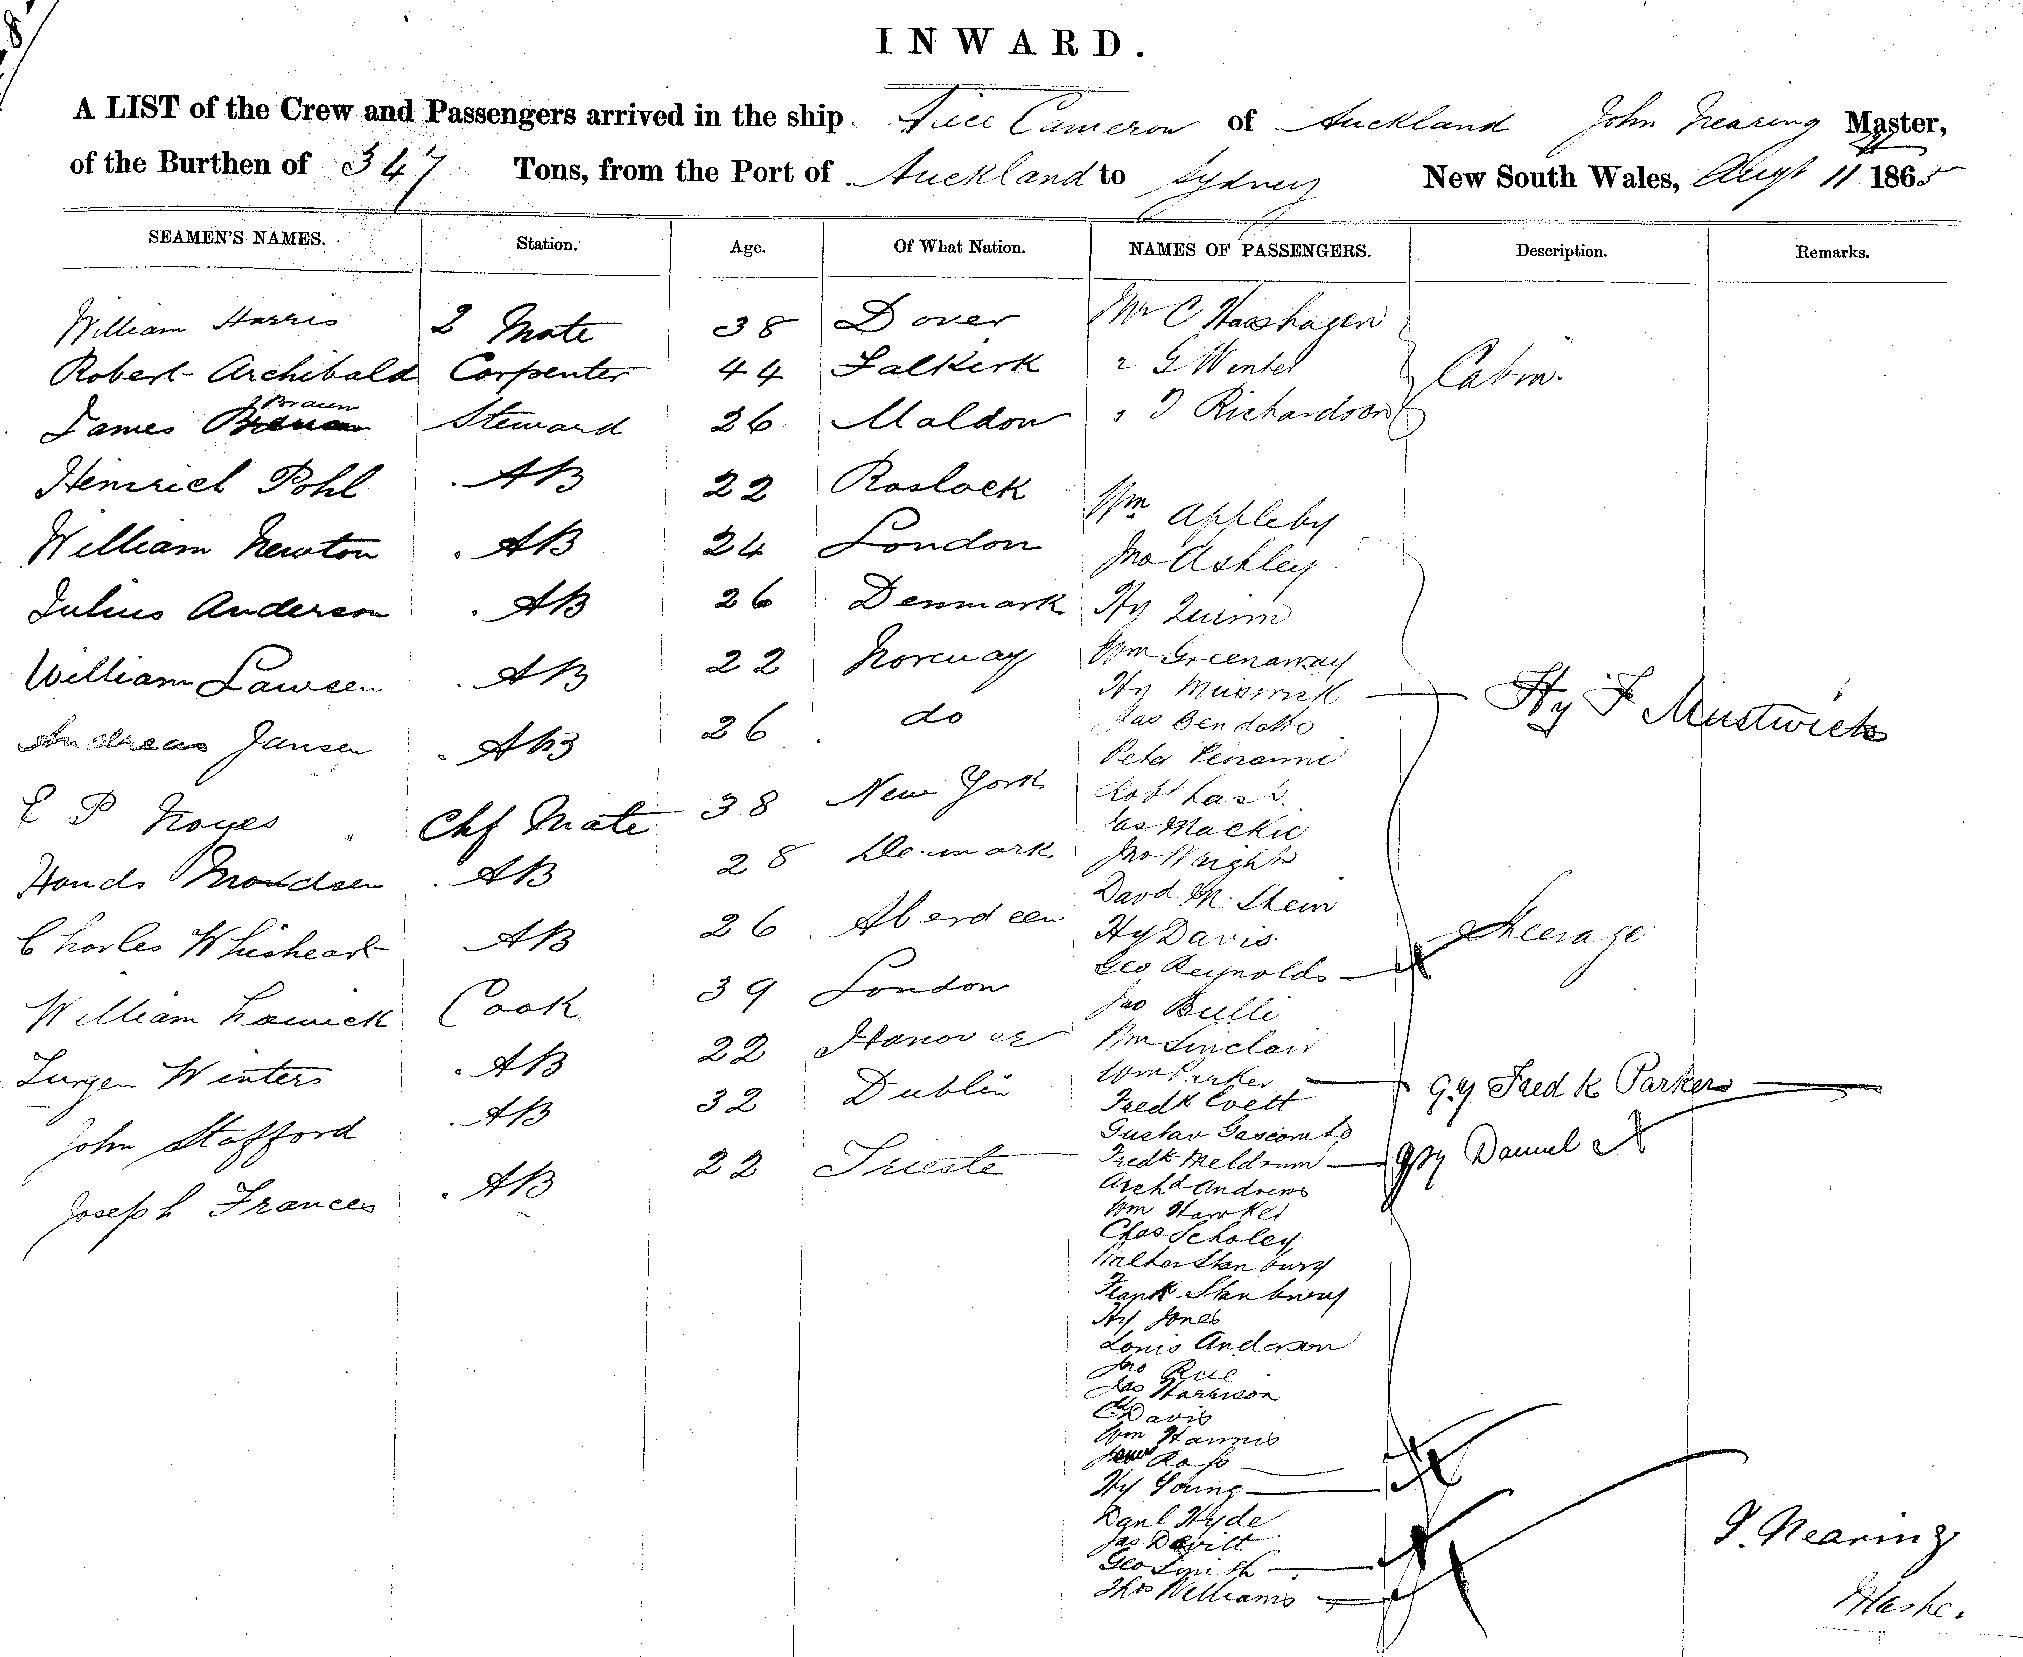 INWARD.
A LIST of the Crew and Passengers arrived in the ship Alice Cameron of Auckland John Nearing Master,
of the Burthen of 347 Tons, from the Port of Auckland to Sydney New South Wales, Augt 11 1865
SEAMEN'S NAMES. Station. Age. Of What Nation. NAMES OF PASSENGERS. Description. Remarks.
William Harris 2 Mate 38 Dover
Robert Archibald Carpenter 44 Falkirk
James Braun Steward 26 Maldon
Heinrich Pohl AB 22 Rostock
William Newton AB 24 London
Julius Anderson AB 26 Denmark
William Lawsen AB 22 Norway
Andreas Jansen AB 26 do
E P Noyes Chf Mate 38 New York
AB 28 Denmark
Charles Whisheart AB 26 Aberdeen
William Cook 39 London
Jurgen Winters AB 22 Hanover
John Stafford AB 32 Dublin
Joseph Frances AB 22 Trieste
Mr C Hasshagen
" G Winter
" T Richardson
Cabin
Wm Appleby
Jno Ashley
Hy Quinn
Wm Greenaway
Hy Hy F Mustwick
Jas
Peter
Robt Lask
Jas Mackie
Jno Wright
David M. Shein
Hy Davis
Steerage
Geo Reynolds
Jas Bulli
Wm Sinclair
Wm Parker Fredk Parker
Fredk Evett
Gustav Gascombe
Fredk Meldrum Daniel
Archd Andrews
Wm Hawker
Chas Scholey
Stanbury
Frank Stanbury
Hy Jones
Louis Anderson
Jno Rue
Jas Harrison
C Davis
Wm Harris
Ross
Hy Young
Danl Hyde
Jas Devitt
Geo Smith
Thos Williams
J. Nearing
Master